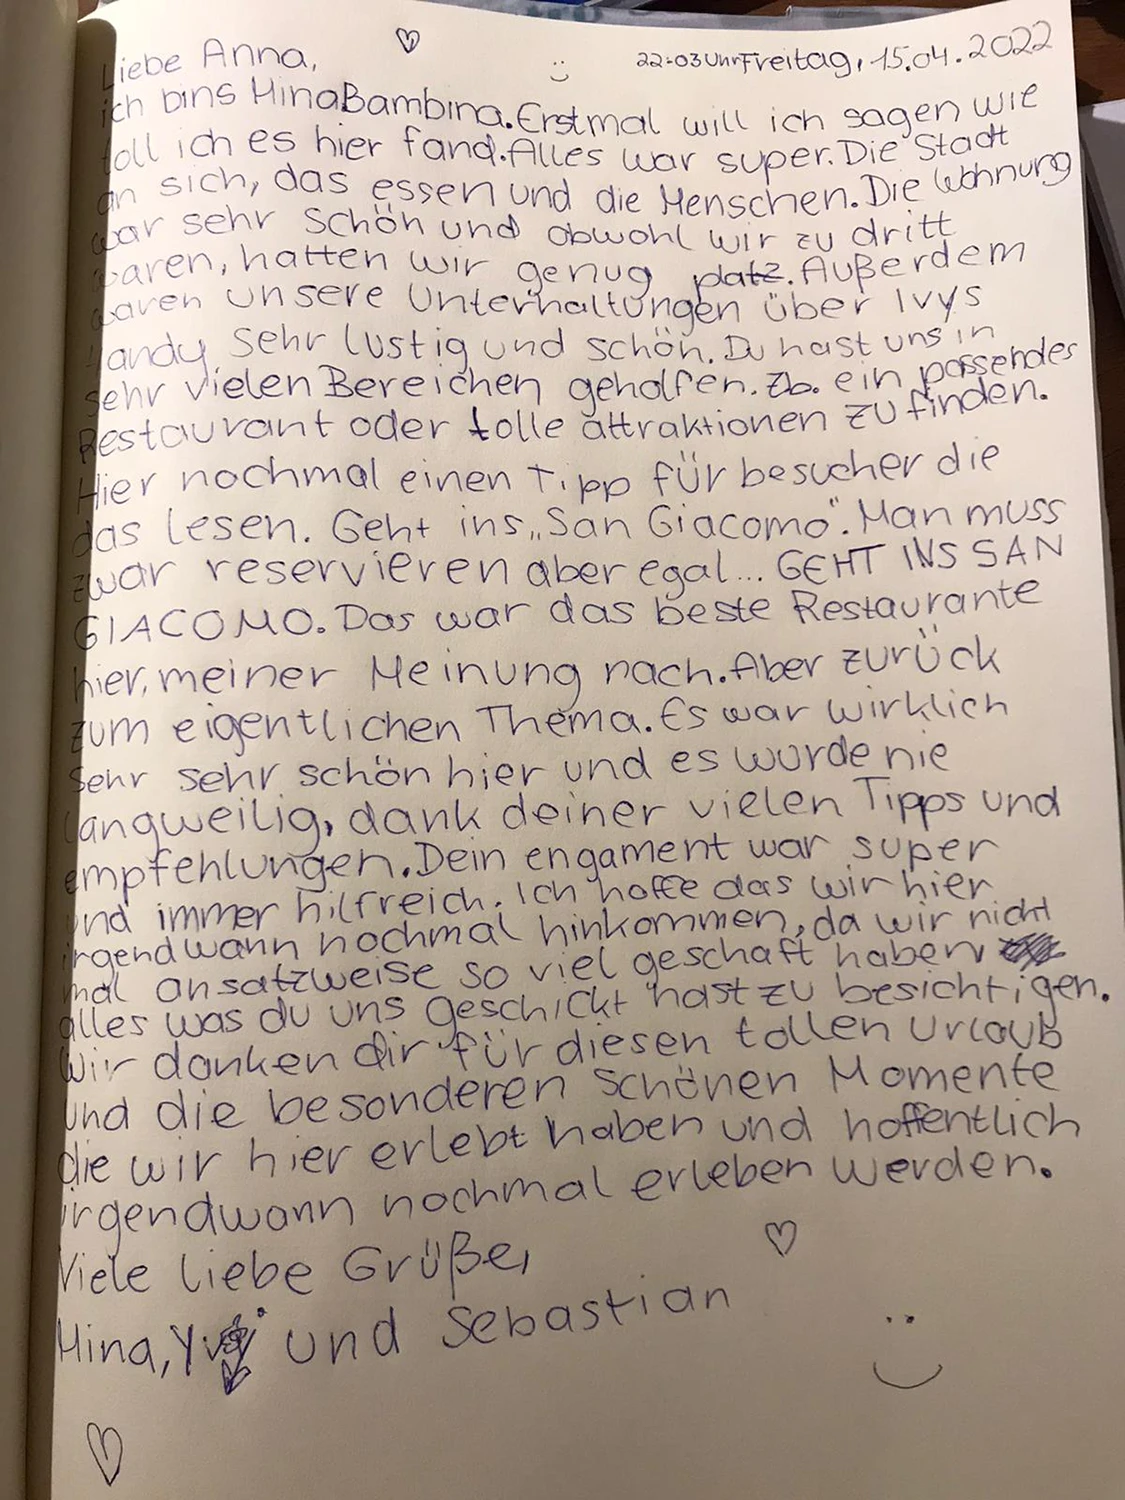 Liebe Anna,
22:03 Uhr Freitag, 15.04.2022
ich bins MinaBambina. Erstmal will ich sagen wie
toll ich es hier fand. Alles war super. Die Stadt
an sich, das essen und die Menschen. Die Wohnung
war sehr schön und obwohl wir zu dritt
waren, hatten wir genug platz. Außerdem
waren unsere Unterhaltungen über Ivys
Handy sehr lustig und schön. Du hast uns in
sehr vielen Bereichen geholfen. Zb. ein passendes
Restaurant oder tolle attraktionen zu finden.
Hier nochmal einen Tipp für besucher die
das lesen. Geht ins „San Giacomo". Man muss
zwar reservieren aber egal... GEHT INS SAN
GIACOMO. Das war das beste Restaurante
hier, meiner Meinung nach. Aber zurück
zum eigentlichen Thema. Es war wirklich
sehr sehr schön hier und es wurde nie
langweilig, dank deiner vielen Tipps und
empfehlungen. Dein engament war super
und immer hilfreich. Ich hoffe das wir hier
irgendwann nochmal hinkommen, da wir nicht
mal ansatzweise so viel geschaft haben
alles was du uns geschickt hast zu besichtigen.
Wir danken dir für diesen tollen Urlaub
und die besonderen schönen Momente
die wir hier erlebt haben und hoffentlich
irgendwann nochmal erleben werden.
Viele liebe Grüße,
Mina, und Sebastian